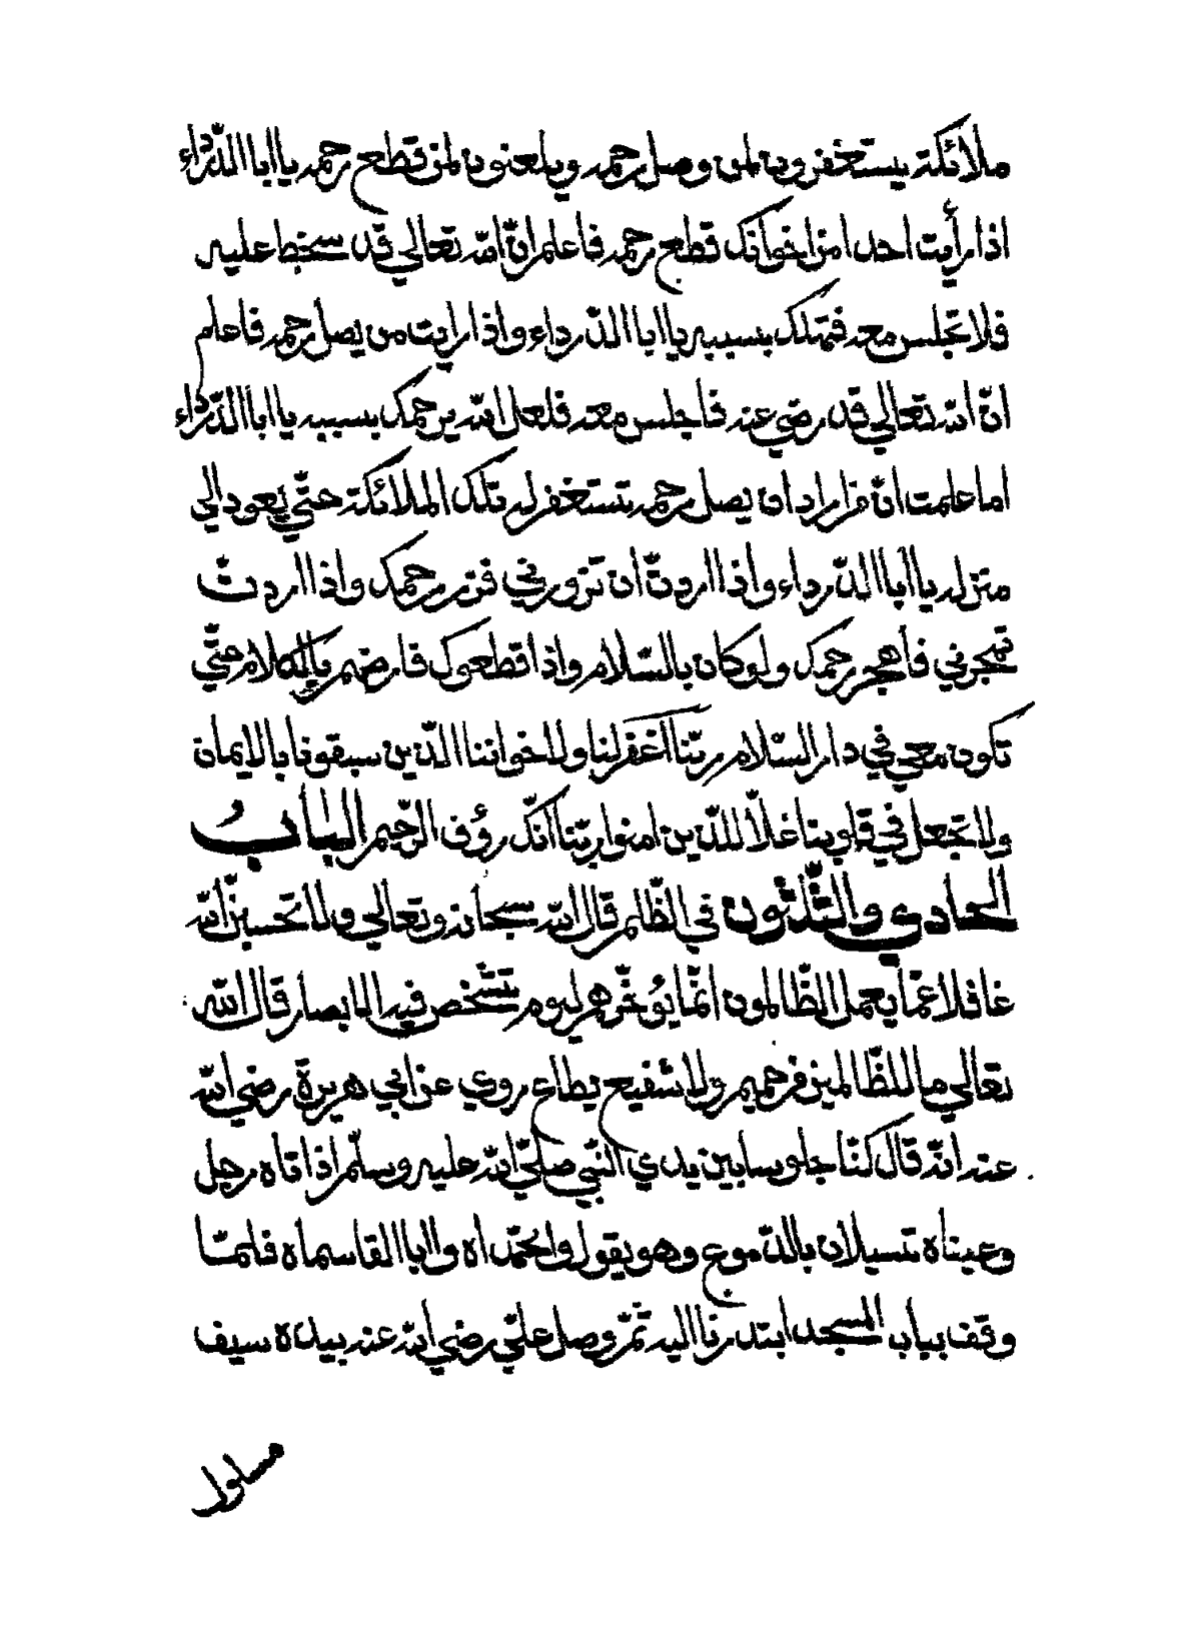 ملائكة يستغفرون لمن وصل رحمه ويلعنون لمن قطع رحمه يا ابا الدّرداء
اذا رأيت احدا من اخوانك قطع رحمه فاعلم انّ الله تعالي قد سخط عليه
فلا تجلس معه فتهلك بسببه يا ابا الدّرداء واذا رايت من يصل رحمه فاعلم
انّ الله تعالي قد رضي عنه فاجلس معه فلعل الله يرحمك بسببه يا ابا الدّرداء
اما علمت انّ من اراد ان يصل رحمه تستغفر له تلك الملائكة حتّي يعود الي
منزله يا أبا الدّرداء واذا اردتّ أن تزورني فزر رحمك واذا اردتّ
تهجرني فأهجر رحمك ولو كان بالسّلام واذا قطعوك فارضهم بالكلام حتّي
تكون معي في دار السّلام ربّنا اغفرلنا ولاخواننا الّذين سبقونا بالايمان
ولا تجعل في قلوبنا غلّا للذّين امنوا ربّنا انّك رؤف الرّحيم البابُ
الحادي والثّلثون في الظّلم قال الله سبحانه وتعالي ولا تحسبنّ الله
غافلا عمّا يعمل الظّالمون انّما يؤخّرهم ليوم تشخص فيه الابصار قال الله
تعالي ما للظّالمين من حميم ولا شفيع يطاع روي عن ابي هريرة رضي الله
عنه انّه قال كنّا جلوسا بين يدي النّبي صلّي الله عليه وسلّم اذا تاه رجل
وعيناه تسيلان بالدّموع وهو يقول وامحمّداه واابا القاسماه فلمّا
وقف بباب المسجد ابتدرنا اليه ثمّ وصل عليّ رضي الله عنه بيده سيف
مسلول